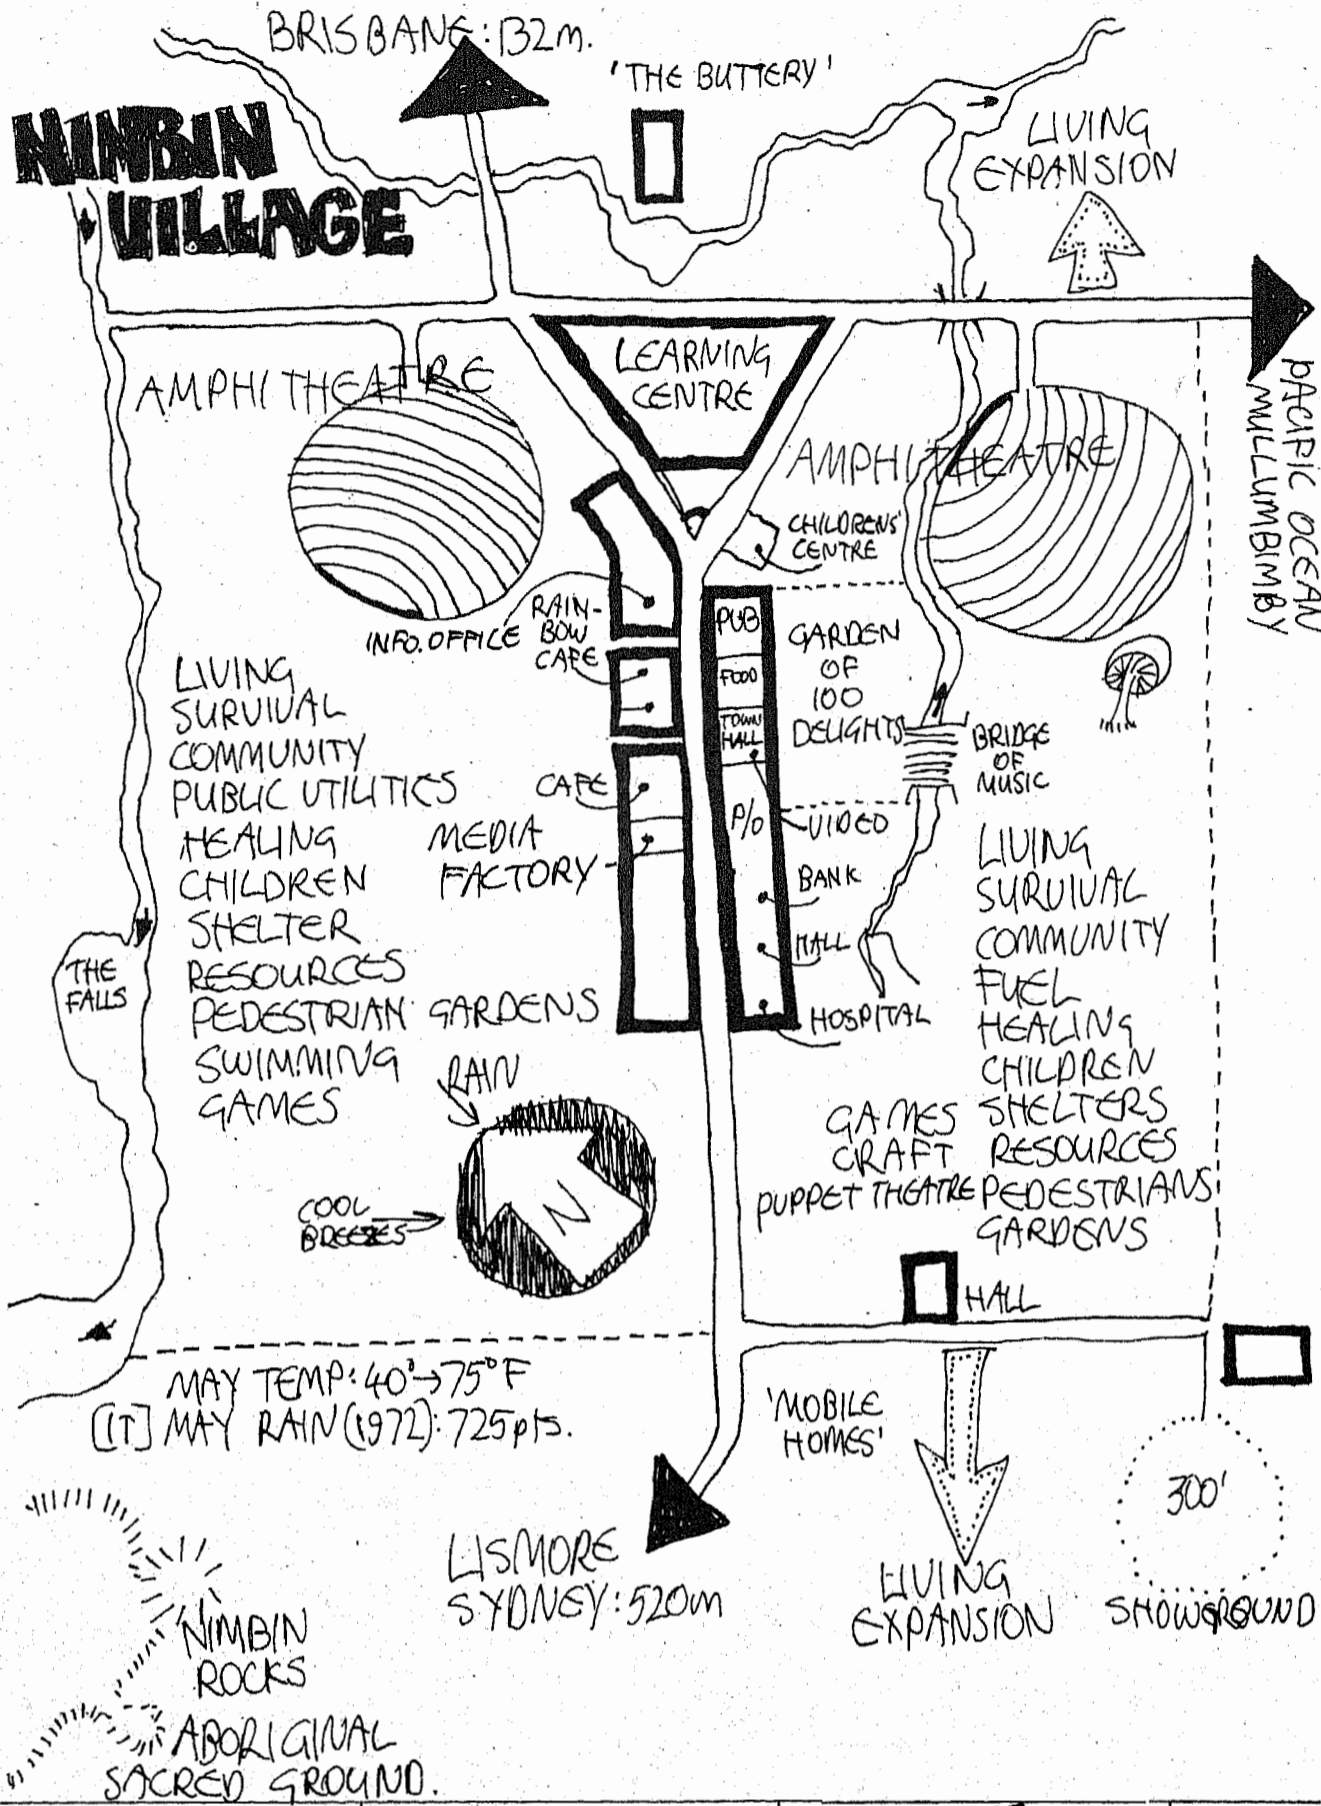 BRISBANE: 132m.
'THE BUTTERY'
NIMBIN
VILLAGE
LIVING
EXPANSION
PACIFIC OCEAN
MULLUMBIMBY
LEARNING
CENTRE
AMPHITHEATRE
AMPHITHEATRE
CHILDRENS'
CENTRE
INFO. OFFICE
RAIN-
BOW
CAFE
PUB
FOOD
TOWN
HALL
P/O
GARDEN
OF
100
DELIGHTS
BRIDGE
OF
MUSIC
CAFE
MEDIA
FACTORY
VIDEO
BANK
HALL
HOSPITAL
LIVING
SURVIVAL
COMMUNITY
PUBLIC UTILITIES
HEALING
CHILDREN
SHELTER
RESOURCES
PEDESTRIAN GARDENS
SWIMMING
GAMES
THE
FALLS
LIVING
SURVIVAL
COMMUNITY
FUEL
HEALING
CHILDREN
GAMES SHELTERS
CRAFT RESOURCES
PUPPET THEATRE PEDESTRIANS
GARDENS
RAIN
COOL
BREEZES
N
HALL
MAY TEMP: 40°→75°F
[IT] MAY RAIN (1972): 725pts.
'MOBILE
HOMES'
300'
SHOWGROUND
LISMORE
SYDNEY: 520m
LIVING
EXPANSION
NIMBIN
ROCKS
ABORIGINAL
SACRED GROUND.